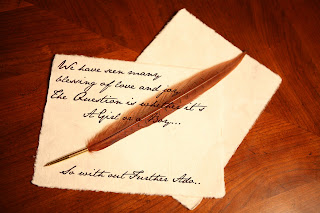 We have seen many
blessing of love and joy
The Question is whether it's
A Girl or a Boy...
So with out Further Ado..